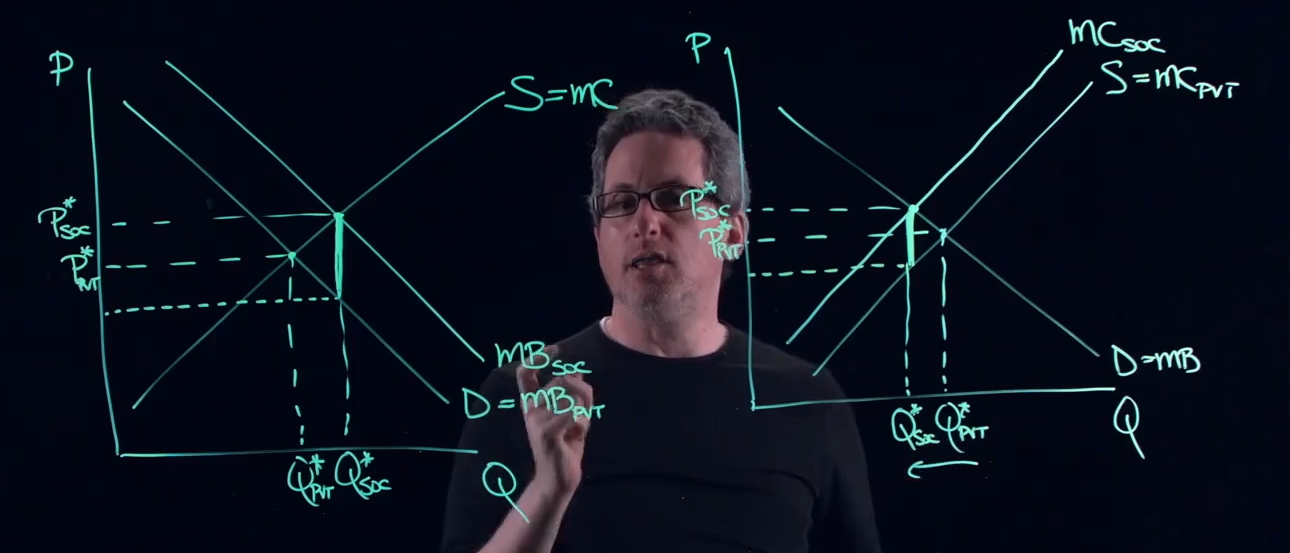 P
S=MC
P*SOC
P*PVT
MBSOC
D=MBPVT
Q*PVT Q*SOC
Q
P
MCSOC
S=MCPVT
P*SOC
P*PVT
D=MB
Q*SOC Q*PVT
Q